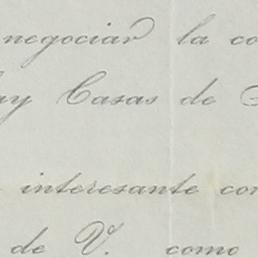 negociar la co
ay Casas de
interesante con
de V. como